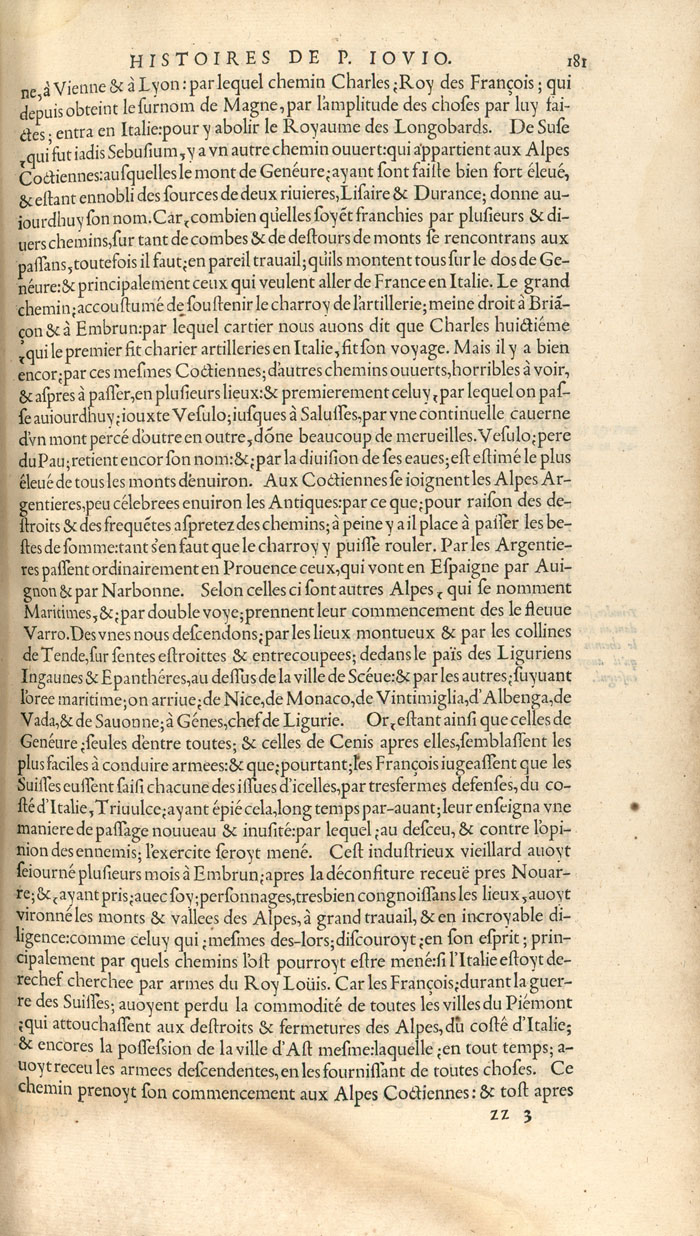 HISTOIRES DE P. IOVIO. 181
ne,à Vienne & à Lyon: par lequel chemin Charles ¿Roy des François ; qui
depuis obteint le ſurnom de Magne,par l'amplitude des choſes par luy fai-
ctes ; entra en Italie:pour y abolir le Royaume des Longobards. De Suſe
¿qui fut iadis Sebuſium, y a vn autre chemin ouuert:qui appartient aux Alpes
Coctiennes:auſquelles le mont de Genéure¿ayant ſont faiſte bien fort éleué,
& eſtant ennobli des ſources de deux riuieres,Liſaire & Durance; donne au-
iourdhuy ſon nom.Car¿combien qu'elles ſoyẽt franchies par pluſieurs & di-
uers chemins,ſur tant de combes & de deſtours de monts ſe rencontrans aux
paſſans,toutefois il faut¿en pareil trauail;qu'ils montent tous ſur le dos de Ge-
néure:& principalement ceux qui veulent aller de France en Italie. Le grand
chemin¿accouſtumé de ſouſtenir le charroy de l'artillerie;meine droit à Briã-
çon & à Embrun:par lequel cartier nous auons dit que Charles huictiéme
¿qui le premier fit charier artilleries en Italie,fit ſon voyage. Mais il y a bien
encor¿par ces meſmes Coctiennes;d'autres chemins ouuerts,horribles à voir,
& aſpres à paſſer,en pluſieurs lieux:& premierement celuy¿par lequel on paſ-
ſe auiourdhuy¿iouxte Veſulo;iuſques à Saluſſes,par vne continuelle cauerne
d'vn mont percé d'outre en outre,dõne beaucoup de merueilles.Veſulo¿pere
du Pau;retient encor ſon nom:&¿par la diuiſion de ſes eaues;eſt eſtimé le plus
éleué de tous les monts d'enuiron. Aux Coctiennes ſe ioignent les Alpes Ar-
gentieres,peu célebrees enuiron les Antiques:par ce que¿pour raiſon des de-
ſtroits & des frequẽtes aſpretez des chemins;à peine y a il place à paſſer les be-
ſtes de ſomme:tant s'en faut que le charroy y puiſſe rouler. Par les Argentie-
res paſſent ordinairement en Prouence ceux,qui vont en Eſpaigne par Aui-
gnon & par Narbonne. Selon celles ci ſont autres Alpes¿ qui ſe nomment
Maritimes,&¿par double voye;prennent leur commencement des le fleuue
Varro.Des vnes nous deſcendons¿par les lieux montueux & par les collines
de Tende,ſur ſentes eſtroittes & entrecoupees; dedans le païs des Liguriens
Ingaunes & Epanthéres,au deſſus de la ville de Scéue:& par les autres¿ſuyuant
l'oree maritime;on arriue¿de Nice,de Monaco,de Vintimiglia,d'Albenga,de
Vada,& de Sauonne;à Génes,chef de Ligurie. Or¿eſtant ainſi que celles de
Genéure¿ſeules d'entre toutes; & celles de Cenis apres elles,ſemblaſſent les
plus faciles à conduire armees:& que¿pourtant;les François iugeaſſent que les
Suiſſes euſſent ſaiſi chacune des iſſues d'icelles,par treſfermes defenſes,du co-
ſté d'Italie,Triuulce¿ayant épié cela,long temps par-auant;leur enſeigna vne
maniere de paſſage nouueau & inuſité:par lequel ¿au deſceu, & contre l'opi-
nion des ennemis; l'exercite ſeroyt mené. Ceſt induſtrieux vieillard auoyt
ſeiourné pluſieurs mois à Embrun¿apres la déconfiture receuë pres Nouar-
re;&¿ayant pris¿auec ſoy;perſonnages,treſbien congnoiſſans les lieux,auoyt
vironné les monts & vallees des Alpes,à grand trauail, & en incroyable di-
ligence:comme celuy qui ¿meſmes des-lors;diſcouroyt¿en ſon eſprit ; prin-
cipalement par quels chemins l'oſt pourroyt eſtre mené:ſi l'Italie eſtoyt de-
rechef cherchee par armes du Roy Loüis. Car les François¿durant la guer-
re des Suiſſes; auoyent perdu la commodité de toutes les villes du Piémont
¿qui attouchaſſent aux deſtroits & fermetures des Alpes,du coſté d'Italie;
& encores la poſſeſsion de la ville d'Aſt meſme:laquelle ¿en tout temps; a-
uoyt receu les armees deſcendentes,en les fourniſſant de toutes choſes. Ce
chemin prenoyt ſon commencement aux Alpes Coctiennes: & toſt apres
zz 3